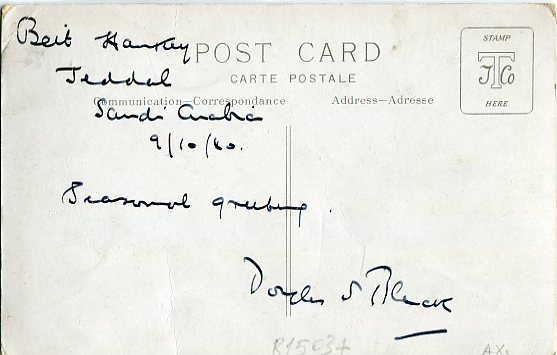 Beit Hankey
POST CARD
Jeddah
CARTE POSTALE
Communication-Correspondance
Address-Adresse
Saudi Arabia
9/10/60.
Seasonal greeting
Douglas S Black
STAMP
T
J Co
HERE
R15034
AXs